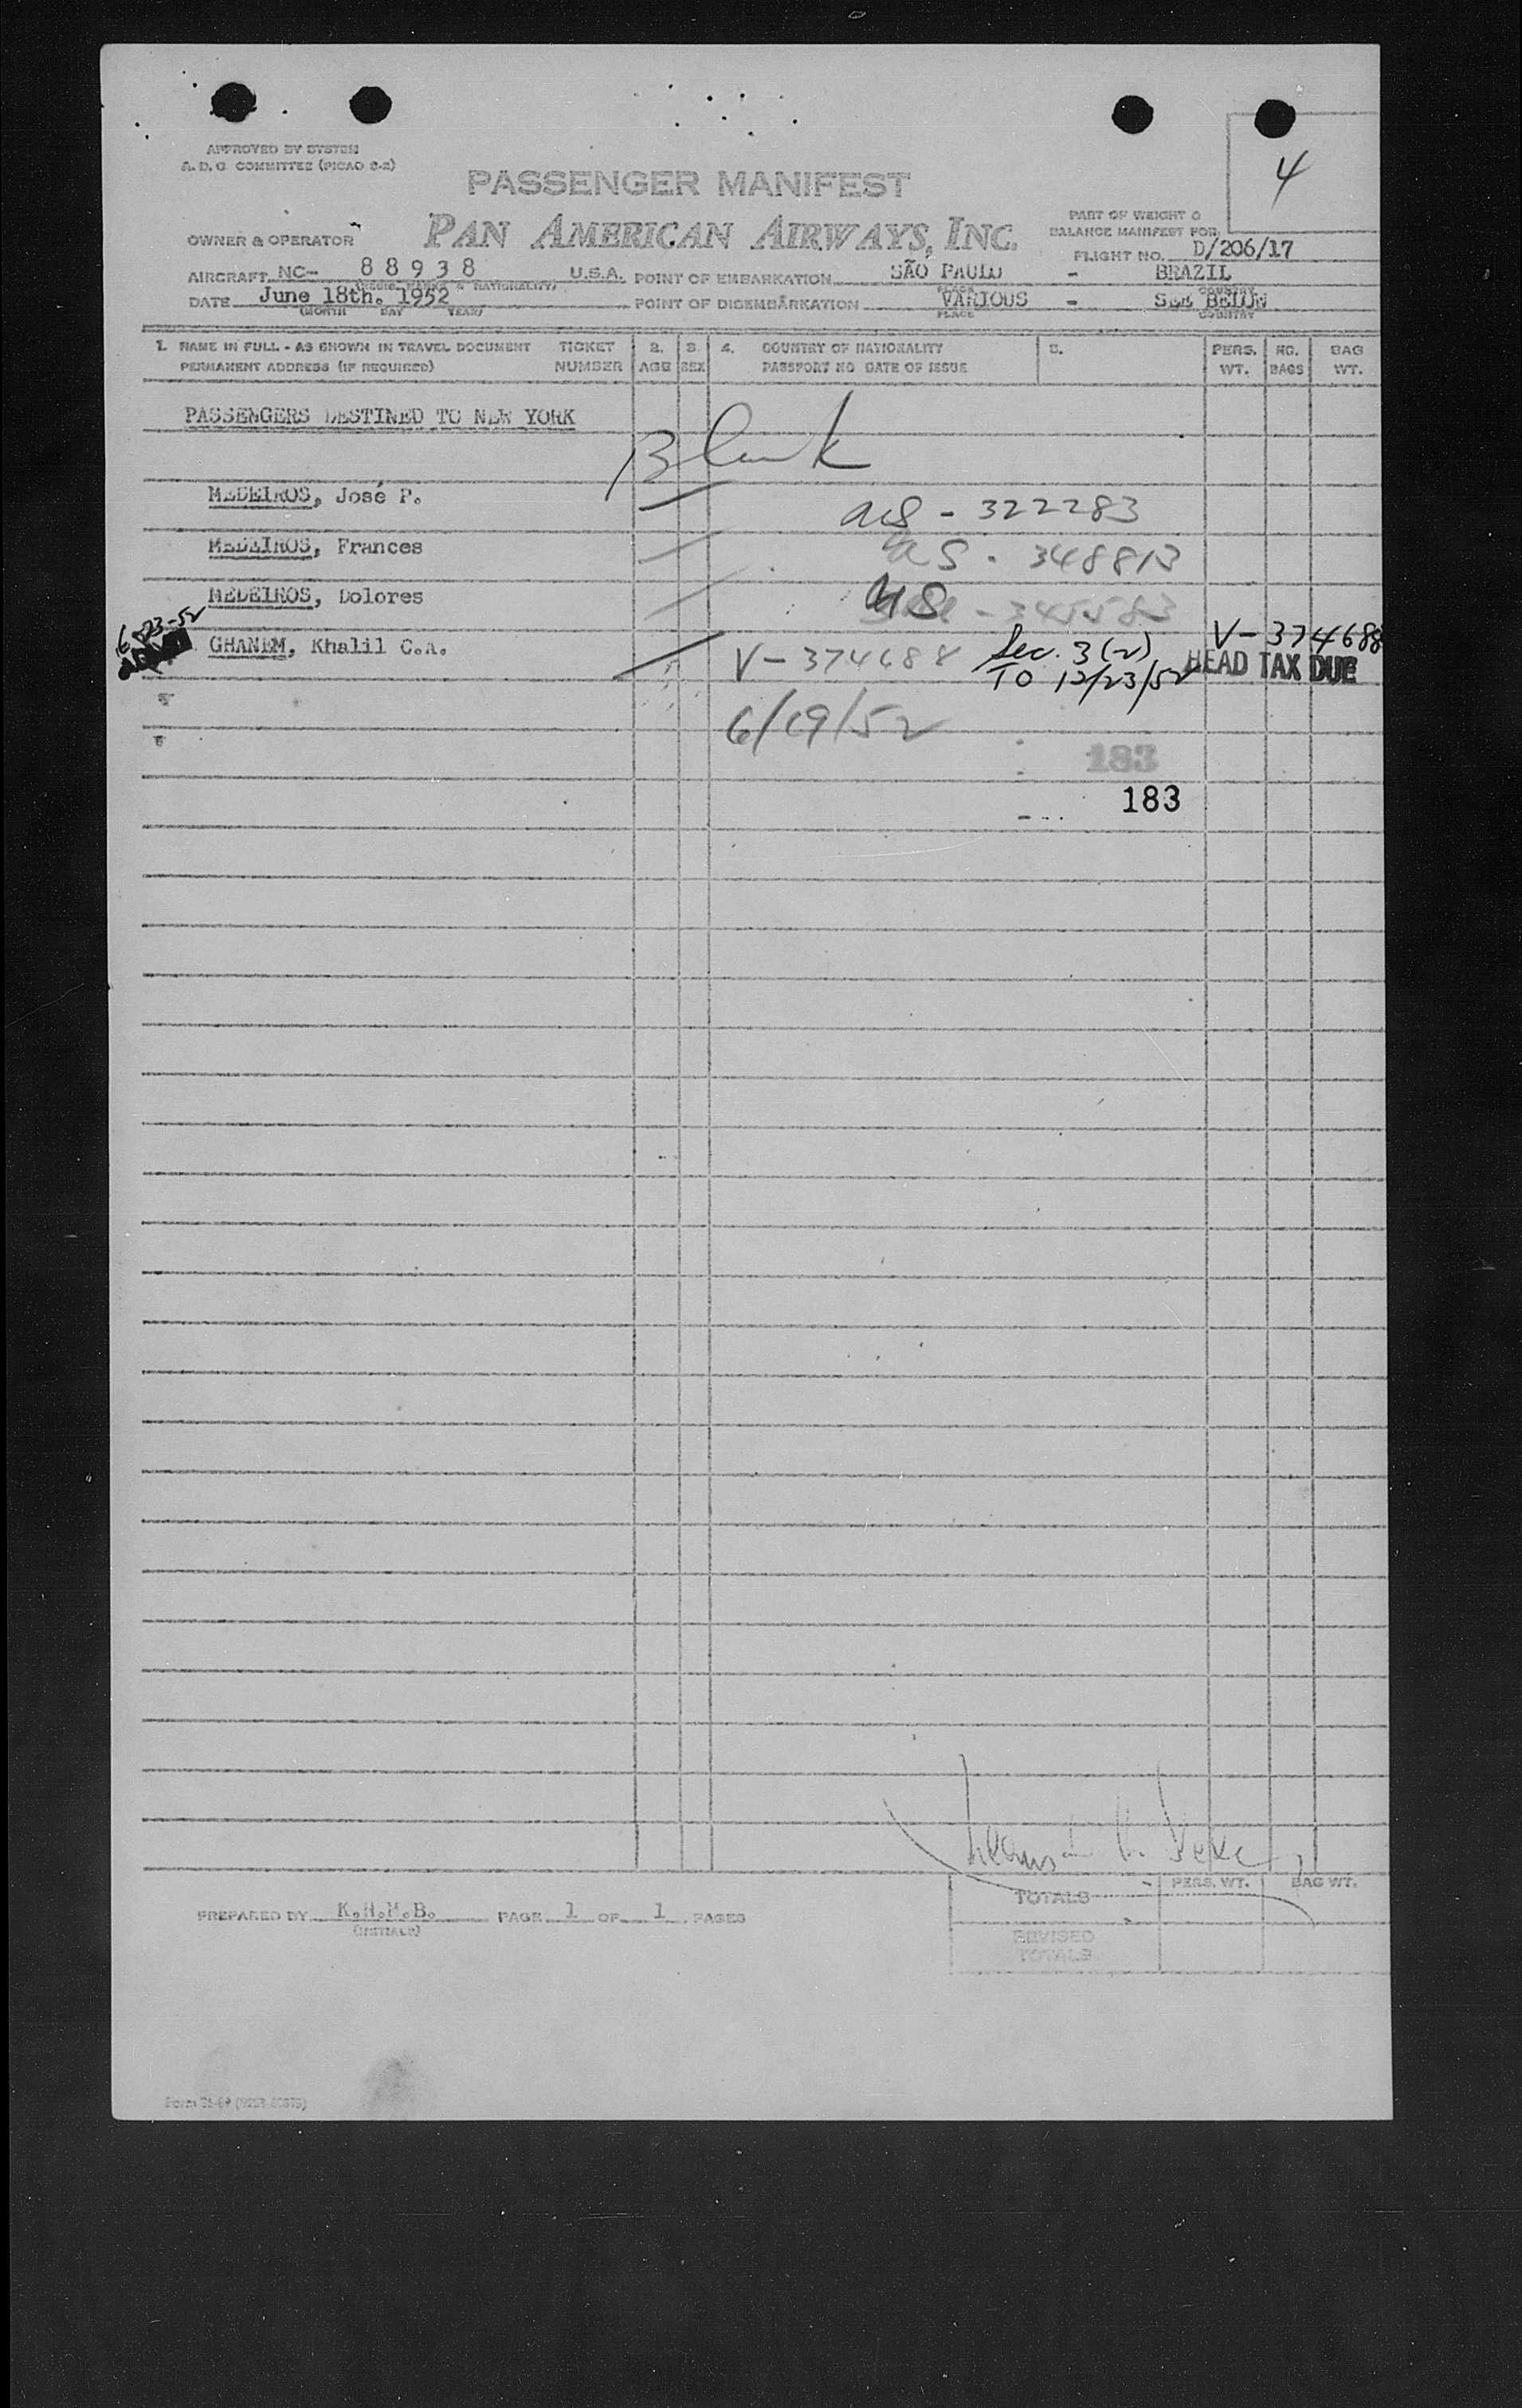 APPROVED BY SYSTEM
A.D.G COMMITTEE (PICAO 2-2)
4
PASSENGER MANIFEST
PART OF WEIGHT &
BALANCE MANIFEST FOR:
OWNER & OPERATOR PAN AMERICAN AIRWAYS, INC.
FLIGHT NO. D/206/17
AIRCRAFT NC- 88938 U.S.A. POINT OF EMBARKATION SÃO PAULO - BRAZIL
(REGIS. MARKS & NATIONALITY) PLACE COUNTRY
DATE June 18th. 1952 POINT OF DISEMBARKATION VARIOUS - SEE BELOW
(MONTH DAY YEAR) PLACE COUNTRY
1. NAME IN FULL - AS SHOWN IN TRAVEL DOCUMENT TICKET 2. 3. 4. COUNTRY OF NATIONALITY 5. PERS. NO. BAG
PERMANENT ADDRESS (IF REQUIRED) NUMBER AGE SEX PASSPORT NO DATE OF ISSUE WT. BAGS WT.
PASSENGERS DESTINED TO NEW YORK
Blank
MEDEIROS, José P. US - 322283
MEDEIROS, Frances US - 348813
MEDEIROS, Dolores US - 345583
6-23-52 V-374688
GHANEM, Khalil C.A. V-374688 Sec. 3(2) HEAD TAX DUE
TO 12/23/52
6/19/52
183
183
TOTALS PERS. WT. BAG WT.
PREPARED BY K.H.M.B. PAGE 1 OF 1 PAGES
(INITIALS)
REVISED
TOTALS